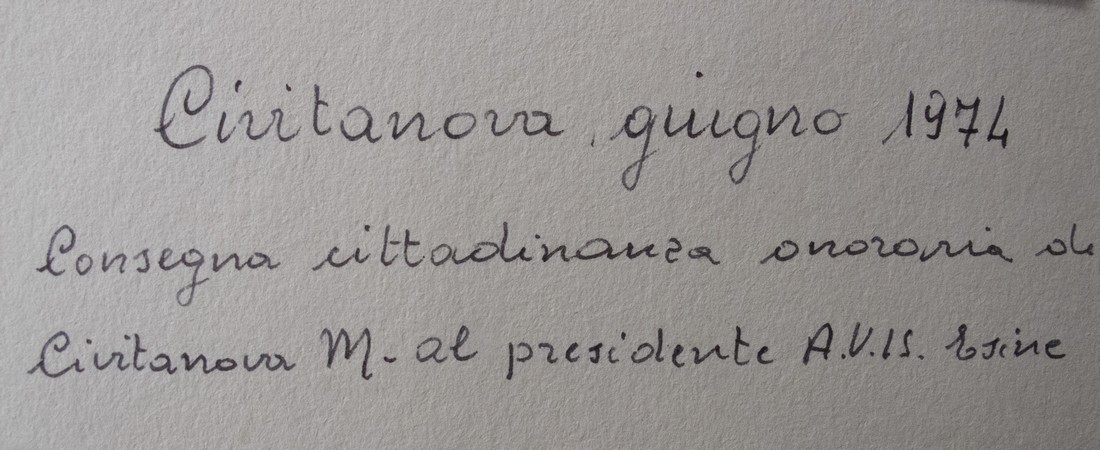 Civitanova, giugno 1974
Consegna cittadinanza onoraria di
Civitanova M. al presidente A.V.I.S. Esine